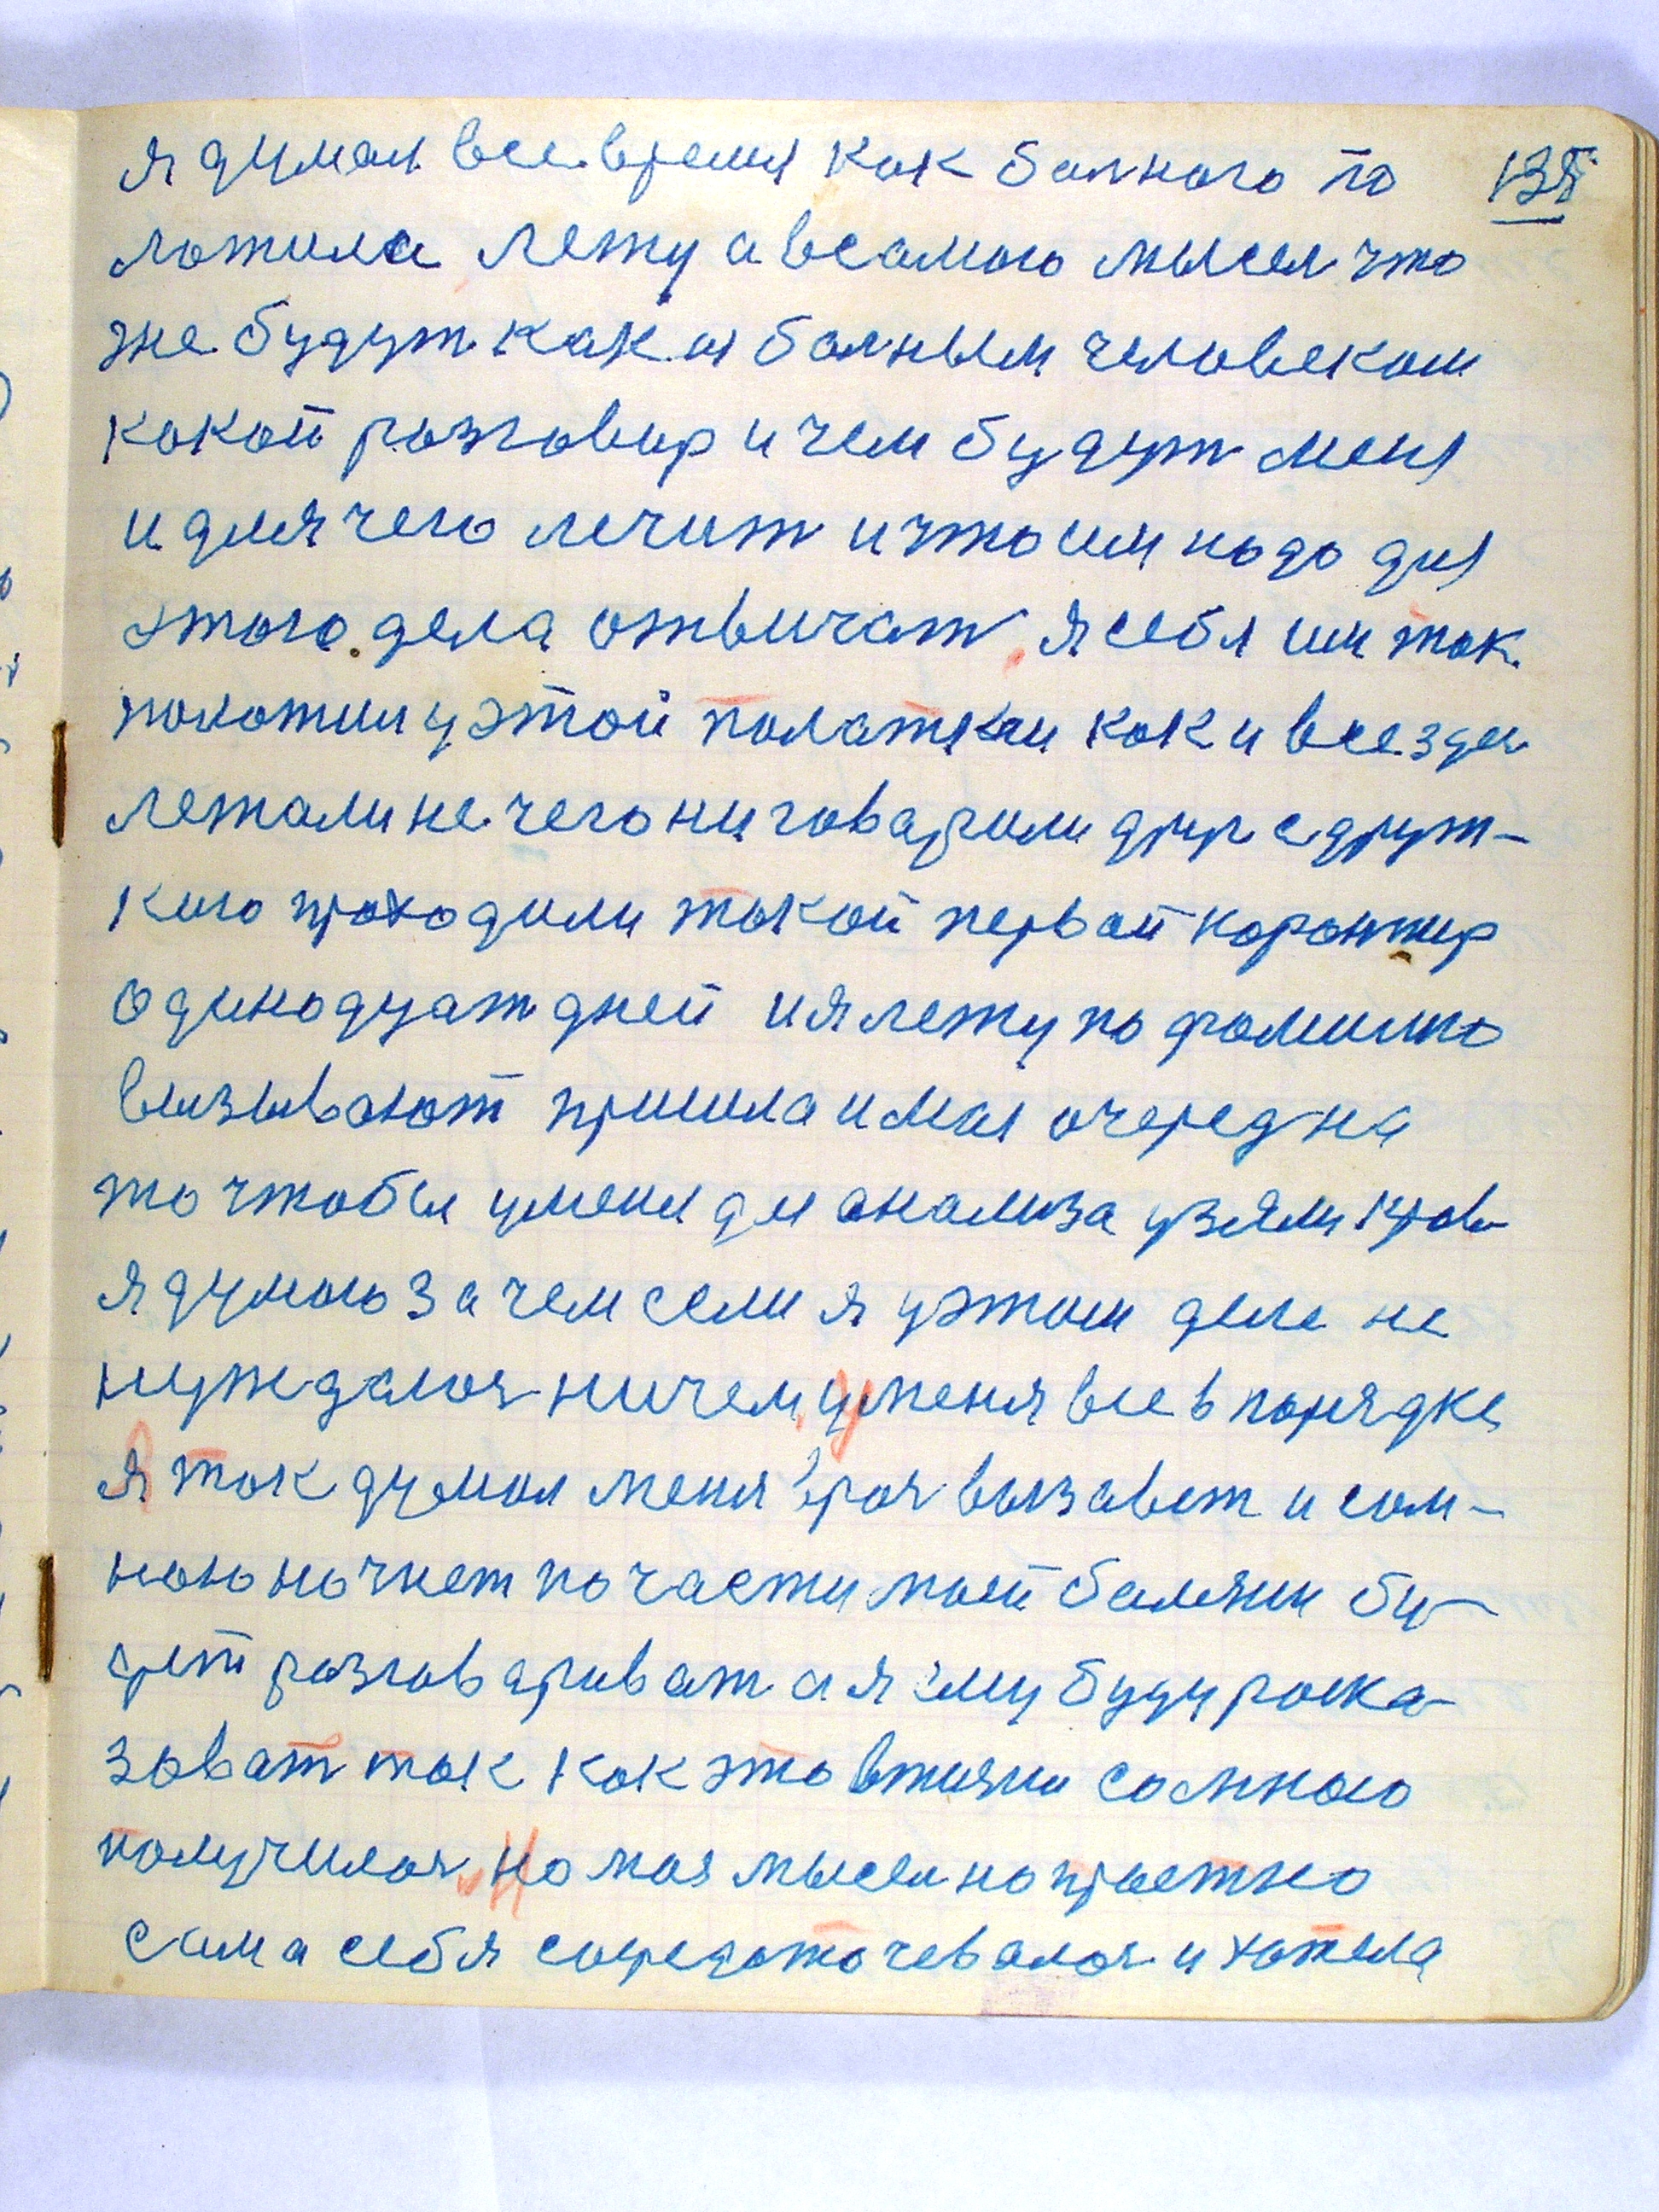 я думал все время как болного по 135
ложила лежу а в самого мысел что
же будут как и болным человеком
какой розговир и чем будут меня
и для чего лечит и что им надо для
этого дела отвичат, я себя им так
положил у этой полатки как и все зде
лежали не чего ни говарили друг с друж-
кию проходили такой первай карантир
одинадцат дней и я лежу по фамилию
вызывают пришла и моя очеред на
то чтобы у меня для анализа узяли кров
я думаю зачем если я у этом деле не
нуждался ничем, у меня все в порядке
я так думал меня врач вызавет и сом-
ною начнет по части моей балязни бу-
дет розговариват а я ему буду раска-
зоват так как это втияни со мною
получилося, но моя мысел напрастно
сама себя сосредоточевалоя и хотела